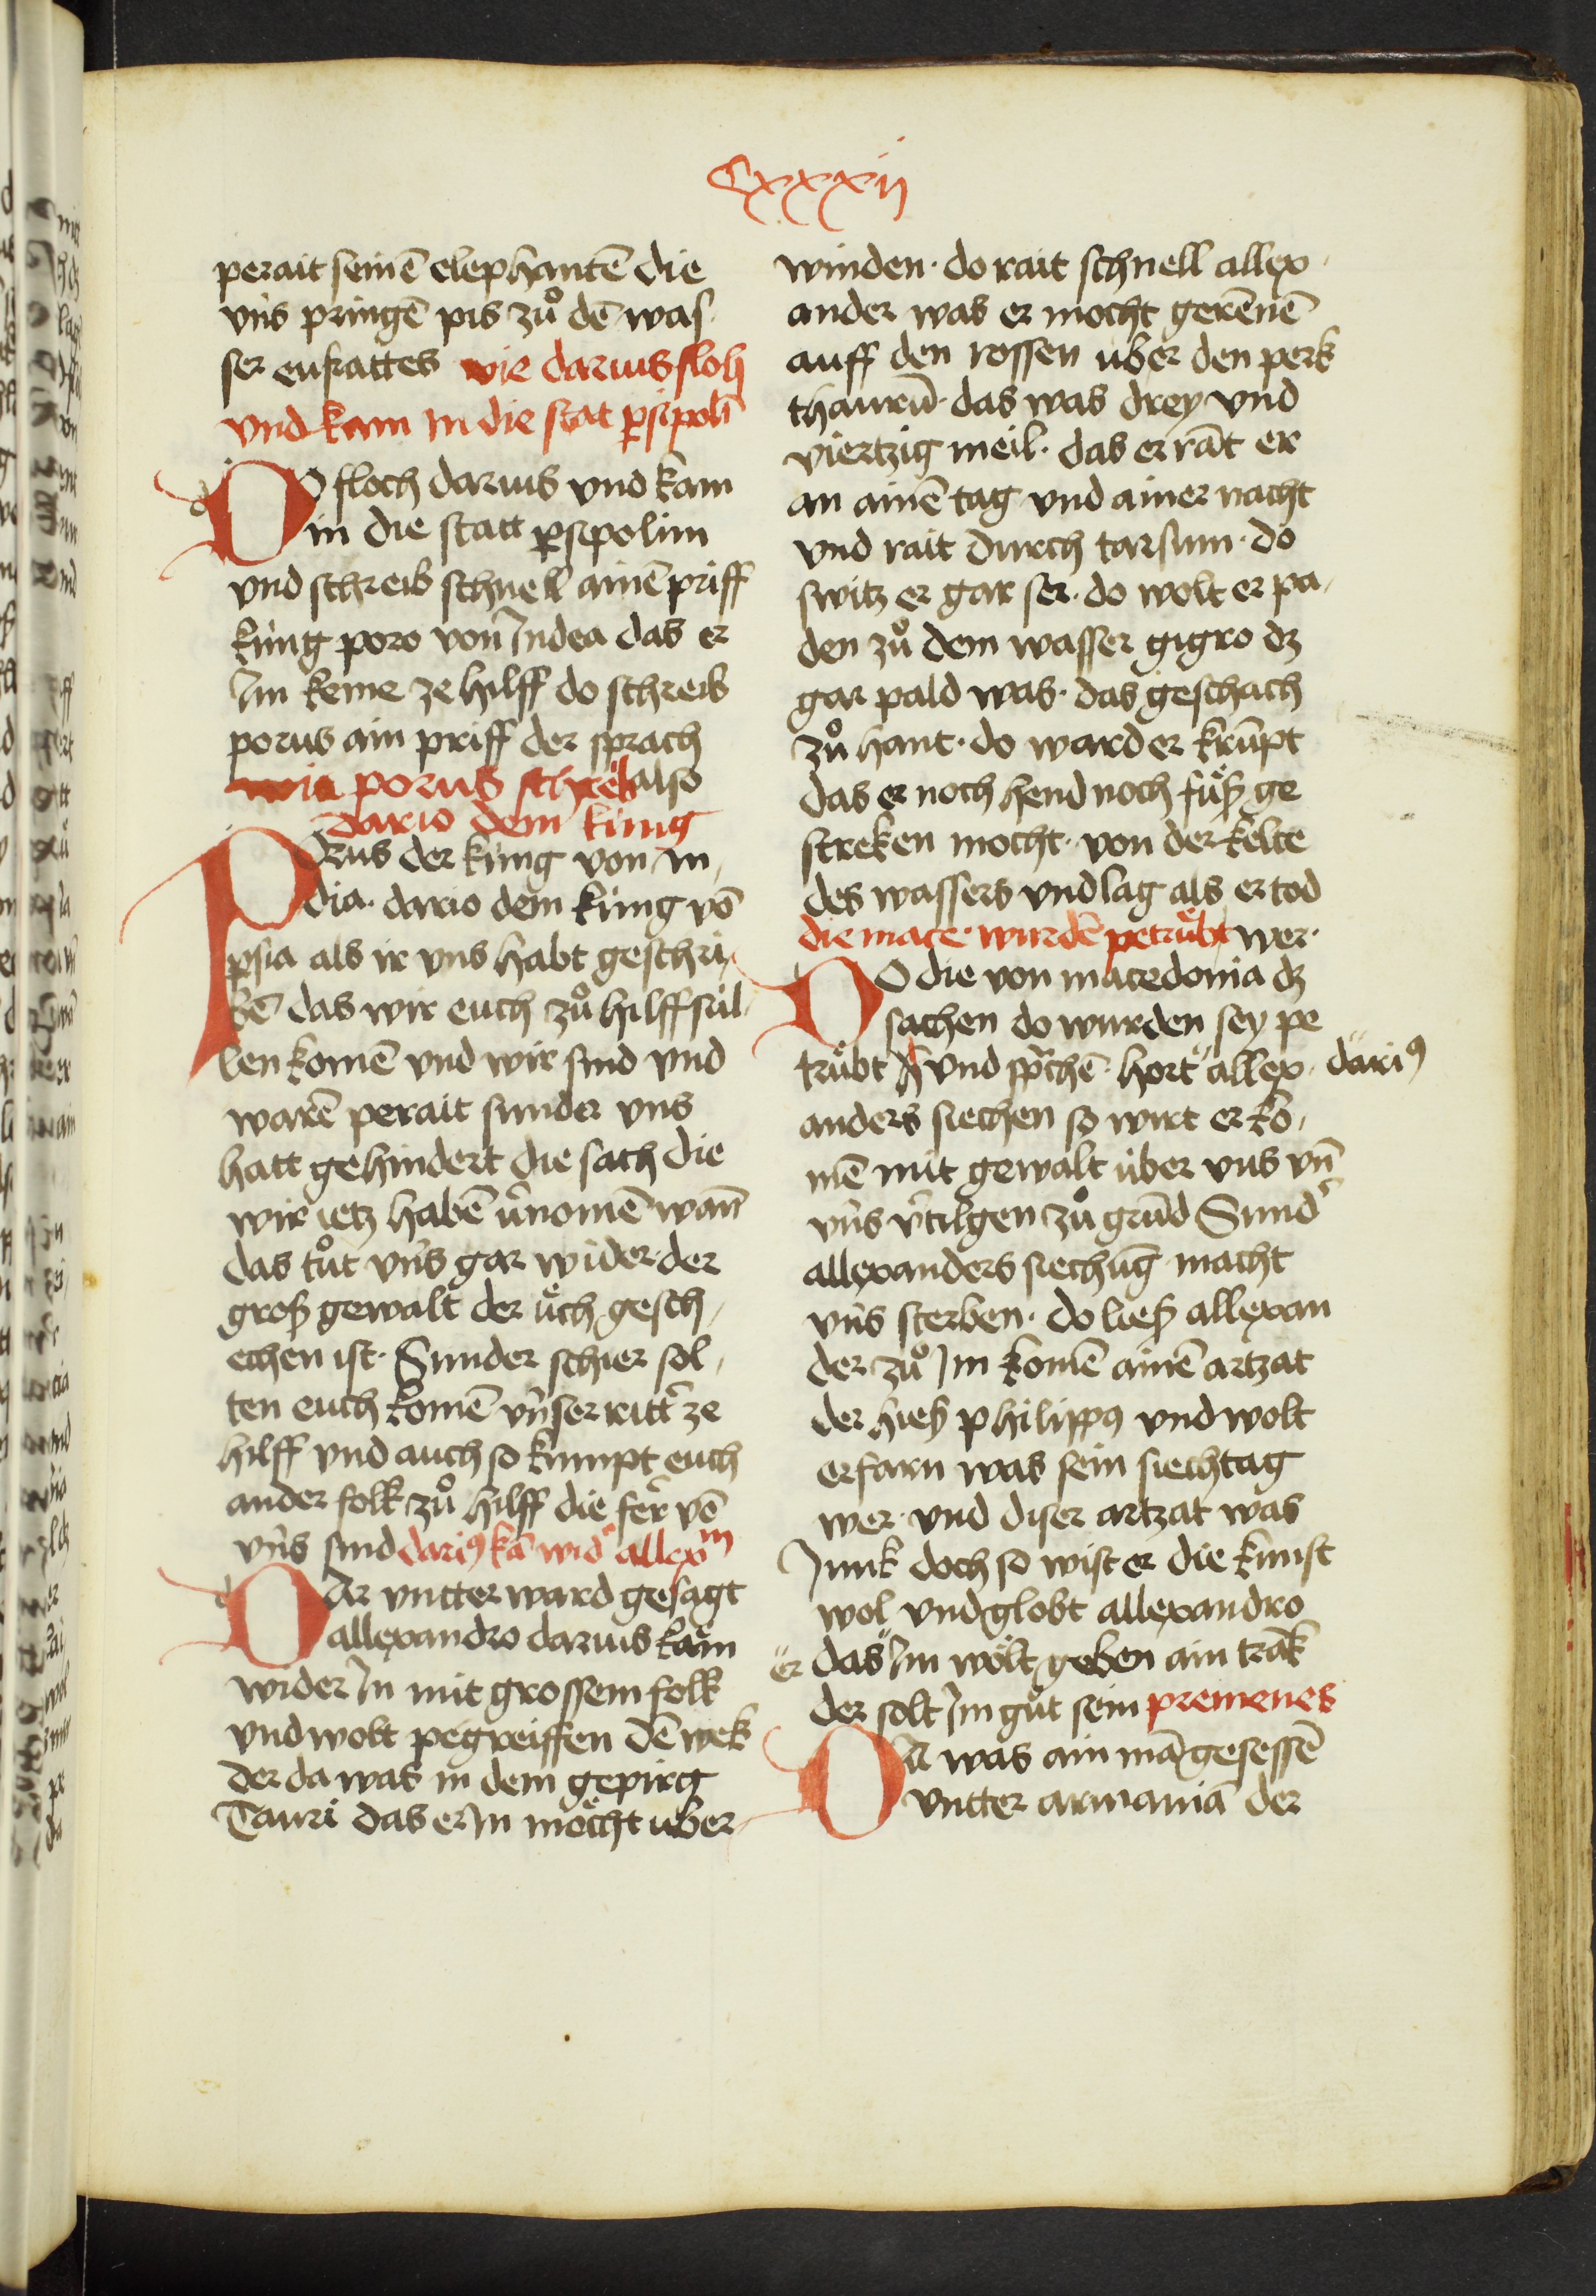 Cxxxij
perait seinē elephantē die
vns pringē pis zů dē was
ser eufrattes wie darius floh
vnd kam in die stat ꝑsipolī
DO floch darius vnd kam
in die statt ꝑsipolim
vnd schreib schnell ainē priff
küng poro von Indea das er
Im keme ze hilff do schreib
porus ain priff der sprach
wie porus schreib also
dario dem küng
POrus der küng von in
dia. dario dem küng vō
ꝑsia als ir vns habt geschri
bē das wir euch zů hilff sül
len komē vnd wir sind vnd
warē perait sunder vns
hatt gehindert die sach die
wir ietz habē v̄nomē wann
das tůt vns gar wider. der
groß gewalt der üch gesch
echen ist. Sunder schier sol
ten euch komē vnser ritt̄ ze
hilff vnd auch so kumpt euch
ander folk zů hilff die fer vō
vns sind dariꝰ kā wid̄ allexm
DAr vntter ward gesagt
allexandro darius kam
wider In mit grossem folk
vnd wolt pegreiffen dē wek
der da was in dem gepirg
Tauri das er In möcht uber
winden. do rait schnell allex
ander was er mocht gerēnē
auff den rossen uber den perk
thaurū. das was drey vnd
viertzig meil. das er rāt er
an ainē tag vnd ainer nacht
vnd rait durch tarsum. do
switz er gar ser. do wolt er pa
den zů dem wasser gigro dz
gar pald was. das geschach
zů hant. do ward er krūpt
das er noch hend noch füß ge
streken mocht. von der kelte
des wassers vnd lag als er tod
die mace. wurdē petrübt wer.
DO die von macedonia dz
sachen do wurden sey pe
trübt vnd sp̄chē. hort allex dariꝰ
anders siechen so wirt er ko
mē mit gewalt über vns vn̄
vns v̄tilgen zů grūd Sund̄
allexanders siechūg macht
vns sterben. do ließ allexan
der zů Im komē ainē artzat
der hieß philippꝰ vnd wolt
erfarn was sein siechtag
wer. vnd diser artzat was
Junk doch so wist er die kunst
wol vnd globt allexandro
er das Im wölt geben ain trāk
der solt Im gůt sein premenes
DA was ain mā gesessē
vntter armaniā der